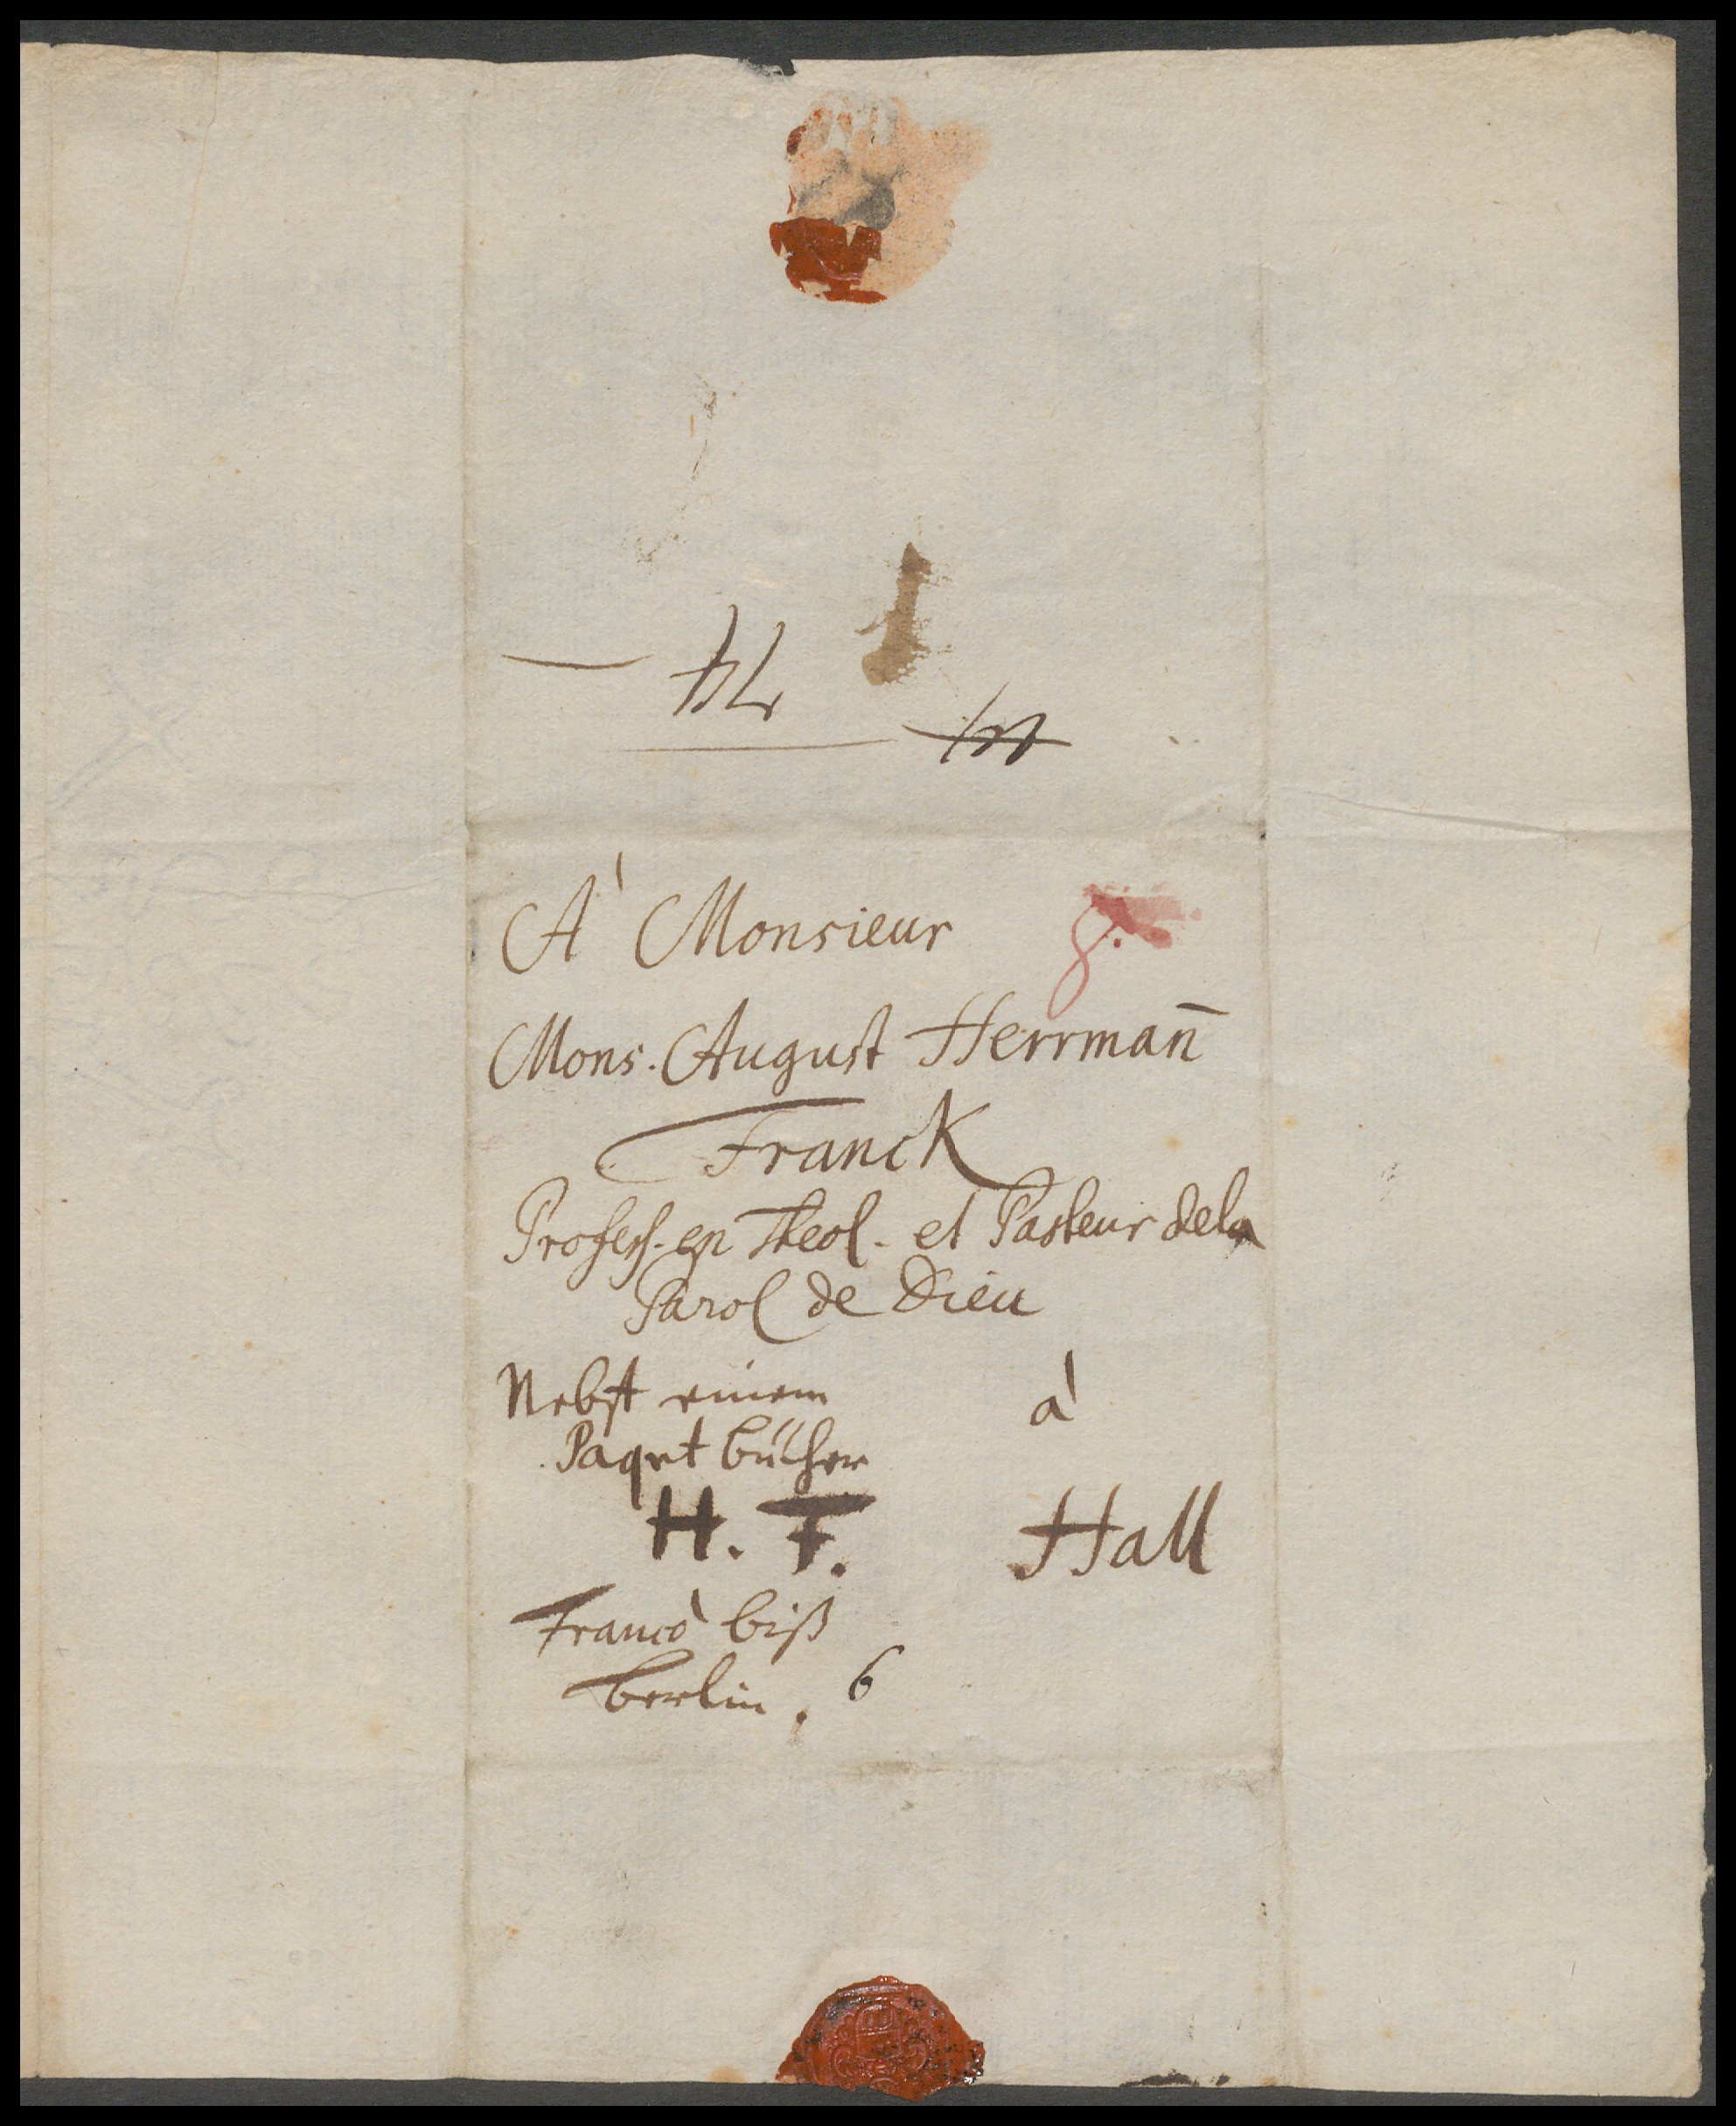 À Monsieur
Mons. August Herrman̄
Franck
Profess. en Theol. et Pasteur dela
Parol de Dieu
Nebst einem
Paqet bücher
à
H. F.
Hall
Francò biß
berlin. 6